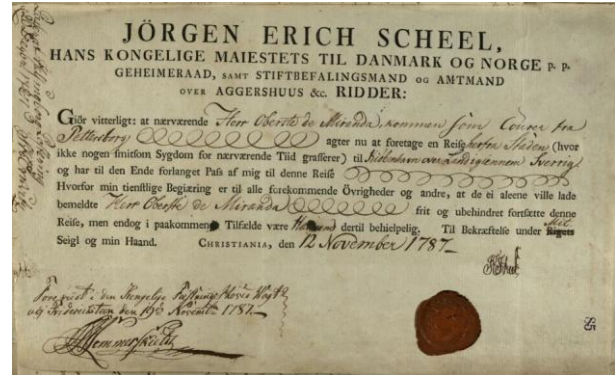 JÖRGEN ERICH SCHEEL,
HANS KONGELIGE MAIESTETS TIL DANMARK OG NORGE P. P.
GEHEIMERAAD, SAMT STIFTBEFALINGSMAND OG AMTMAND
OVER AGGERSHUUS &c. RIDDER:
Giör vitterligt: at nærværende Herr Oberste de Miranda, kommen som Courer fra
Pettersborg agter nu at foretage en Reise herfra Staden (hvor
ikke nogen smitsom Sygdom for nærværende Tiid grasserer) til Kiöbenhavn over igiennem Sverrig
og har til den Ende forlanget Pass af mig til denne Reise
Hvorfor min tienstlige Begiæring er til alle forekommende Övrigheder og andre, at de ei aleene ville lade
bemeldte Herr Oberste de Miranda frit og ubehindret fortsætte denne
Reise, men endog i paakommende Tilfælde være Ham dertil behielpelig. Til Bekræftelse under Mit
Seigl og min Haand. CHRISTIANIA, den 12 November 1787.
Forevist i den Kongelige
og Friderichstein den 19de Novembr 1787.
85